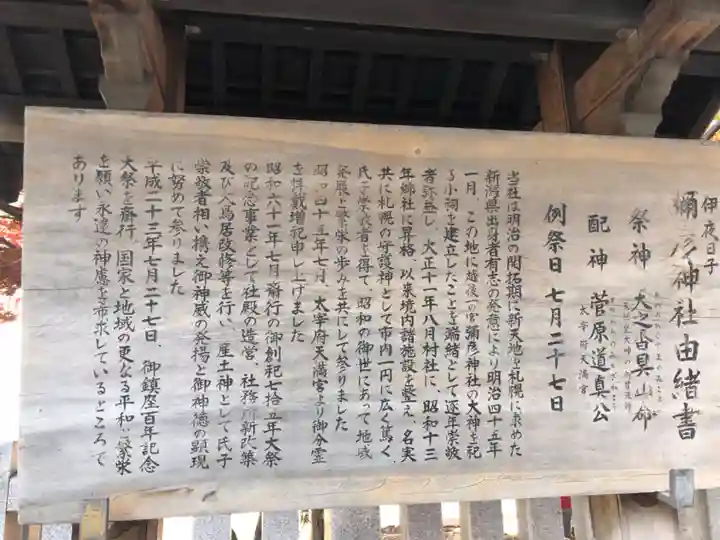 伊夜日子
彌彦神社由緒書
祭神 天之香具山命
配神 菅原道真公
太宰府天満宮
例祭日 七月二十七日
当社は明治の開拓期に新天地を札幌に求めた
新潟県出身者有志の発意により明治四十五年
一月、この地に越後一の宮彌彦神社の大神を祀
る小祠を建立したことを端緒として逐年崇敬
者弥益し、大正十一年八月村社に、昭和十三
年郷社に昇格、以来境内諸施設を整え、名実
共に札幌の守護神として市内一円に広く篤く、
氏子崇敬者を得て、昭和の御世にあって地域
発展と繁栄の歩みを共にして参りました
昭和四十五年七月、太宰府天満宮より御分霊
を拝戴増祀申し上げました
昭和六十一年七月斎行の御創祀七拾五年大祭
の記念事業として社殿の造営、社務所新改築
及び大鳥居改修等を行い、産土神として氏子
崇敬者相い携え御神威の発揚と御神徳の顕現
に努めて参りました
平成二十三年七月二十七日、御鎮座百年記念
大祭を斎行、国家と地域の更なる平和と繁栄
を願い永遠の神慮を希求しているところで
あります